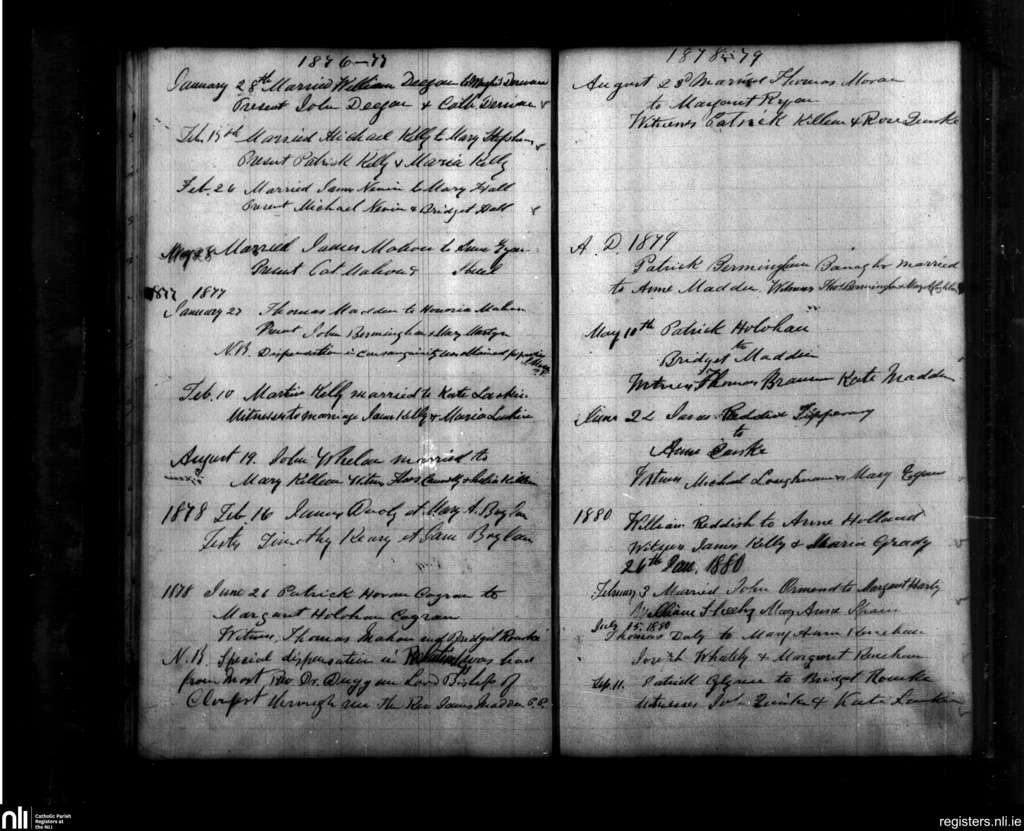 1876-77
January 28th Married William Deegan to Derwan
Present John Deegan & Cath Derwan
Feb. 15th Married Michael Kelly to Mary Stephens
Present Patrick Kelly & Maria Kelly
Feb. 26 Married James Nevin to Mary Hall
Present Michael Nevin & Bridget Dall
May 28 Married James Mahon to Egan
Present Pat Mahon &
1877 1877
January 27 Thomas Madden to Honoria Mahon
Present John Bermingham & Mary Martyn
N.B. Dispensation in Consanguinity was obtained
Feb. 10 Martin Kelly married to Kate Larkin
Witnesses to marriage James Kelly & Maria Larkin
August 19. John Whelan married to
Mary Killeen Witness & Killeen
1878 Feb. 16 James Dooly et Mary A. Boylan
Testes Timothy Keary et Jane Boylan
1878 June 26 Patrick Horan Cogran to
Margaret Holohan Cogran
Witness, Thomas Mahon and Bridget Rourke
N.B. Special dispensation in was had
from Most Rev Dr. Duggan Lord Bishop of
Clonfert through me the Rev James Madden P.P.
1878-79
August 28 Married Thomas Moran
to Margaret Ryan
Witness Patrick Killeen & Rose Quirke
A.D. 1879
Patrick Bermingham Banagher married
to Anne Madden. Witness Thos Bermingham &
May 10th Patrick Holohan
to
Bridget Madden
Witness Thomas Kate Madden
June 22 Reddish Tipperary
to
Anne
Witness Michael Loughnane & Mary Egan
1880 William Reddish to Anne Holland
Witness James Kelly & Maria Grady
26th Jan. 1880
February 3 Married John Ormond to Margaret Harty
William Sheehy Mary Anne
July 15. 1880
Thomas Daly to Mary Anne
Joseph Whately & Margaret
Sep. 11. Patrick to Bridget Rourke
Witnesses John Quirke & Kate Larkin
nli
Catholic Parish
Registers at
the NLI
registers.nli.ie